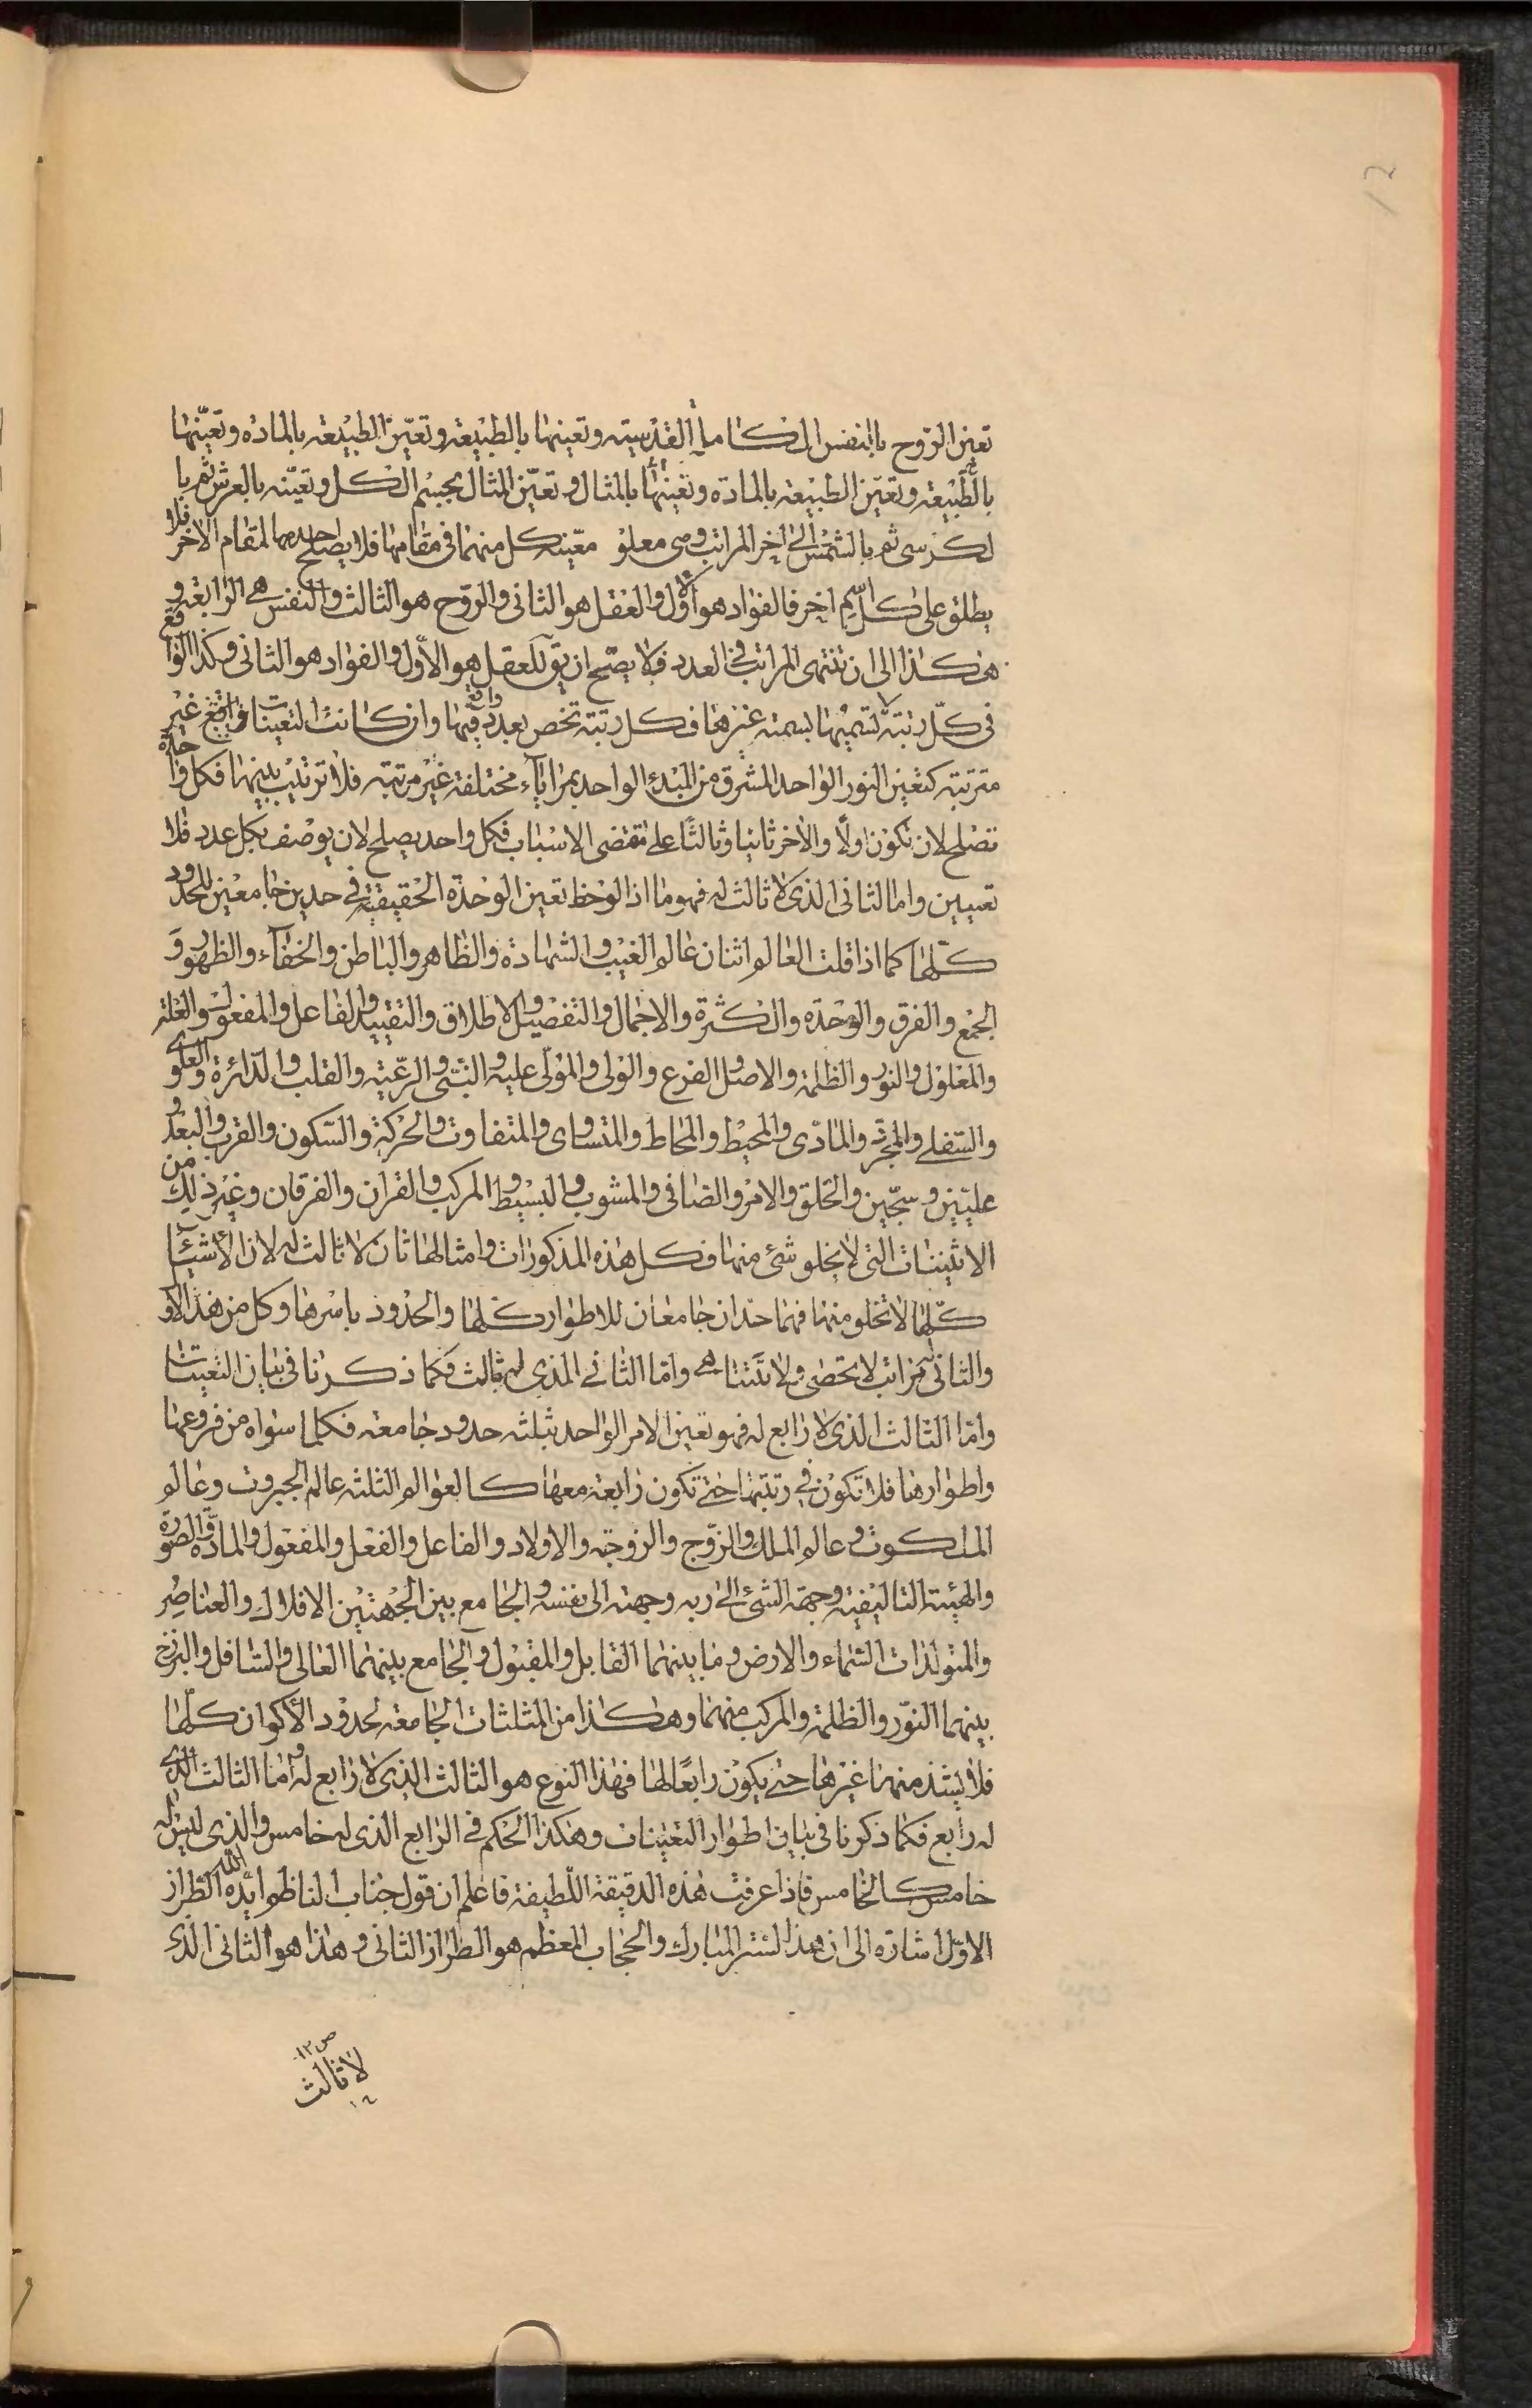 تعين الروح بالنفس الكاملة القدسيته وتعينها بالطبيعة وتعيّن الطبيعة بالمادة وتعيّنها
بالطّبيعة وتعيّن الطبيعة بالمادة وتعينها بالمثال وتعيّن المثال بجسم الكل وتعيّنه بالعرش ثم با
لكرسى ثم بالشمس الى اخر المراتب وهى معلو معيّنة كل منهما فى مقامها فلا يصلح احدهما المقام الاخر فلا
يطلق على كل اسم اخر فالفواد هو اول والعقل هو الثانى والروح هو الثالث والنفس هى الرابعة و
هكذا الى ان تنتهى المراتب فى العدد فلا يصّح ان يق للعقل هو الاوّل والفواد هو الثانى وكذا الوا قع
فى كلّ رتبة لا تسميها بسمته غيرها فكل رتبة تخص بعدد فيها وان كانت التعينات غير
مترتبه كتعين النور الواحد المشرق من المبدء الواحد بمراياء مختلفة غير مرتبه فلا ترتيب بينها فكل وا حدة
تصلح لان تكون اولًا والاخر ثانيا وثالثًا على مقتضى الاسباب فكل واحد يصلح لان يوصف بكل عدد فلا
تعيين واما الثانى الذى لا ثالث له فهو ما اذا لوحظ تعين الوحدة الحقيقية فى حدين جامعين للحدود
كلّها كما اذا قلت العالم اثنان عالم الغيب والشهادة والظاهر والباطن والخفاء والظهور وَ
الجمع والفرق والوحده والكثرة والاجمال والتفصيل والاطلاق والتقييد والفاعل والمفعول والعلة
والمعلول والنور والظلمة والاصل والفرع والولى والمولّى عليه والنبّى والرعّية والقلب والدّائرة والعلوى
والسّفلے والمجرّد والمادّى والمحيط والمحاط والمتساوى والمتفاوت والحركة والسّكون والقرب والبعد و
عليّين وسجّين والخلق والامر والصافى والمشوب والبسيط والمركب والقران والفرقان وغير ذلك من
الاثنينات التى لا يخلو شئ منها فكل هذه المذكورات وامثالها ثان لا ثالث له لان الأشيئا
كلّها لا تخلو منها فهما حدان جامعان للاطوار كلّها والحدود باسرها وكل من هذا الاو
والثانى له مراتب لا تحصى ولا تتناهى وامّا الثانے الذى له ثالث فكما ذكرنا فى بيان التعينات
وامّا الثالث الذى لا رابع له فهو تعين الامر الواحد بثلثه حدود جامعه فكلما سواه من فروعها
واطوارها فلا تكون فى رتبتها حتے تكون رابعة معها كالعوالم الثلثه عالم الجبروت وعالم
الملكوت وعالم الملك والزوّج والزوجه والاولاد والفاعل والفعل والمفعول والمادّة والصورة
والهيئة التاليفية وجهة الشئ الى ربه وجهته الى نفسه والجامع بين الجهتين الافلاك والعناصِر
والمتولدات السّماء والارض وما بينهما القابل والمقبول والجامع بينهما العالى والسّافل والبرزخ
بينهما النوّر والظلمة والمركب منهما وهكذا من المثلثات الجامعه لحدود الأكوان كلّها
فلا يشذ منها غيرها حتے يكون رابعًا لها فهذا النوع هو الثالث الذى لا رابع له وامّا الثالث الذى
له رابع فكما ذكرنا فى بيان اطوار التعينات وهكذا الحكم فى الرابع الذى له خامس والذى ليس له
خامس كالخامس فاذا عرفت هذه الدقيقة اللّطيفة فاعلم ان قول جناب الناظم ايده اللّه الطراز
الاوّل اشارة الى ان هذا الستر المبارك والحجاب المعظم هو الطراز الثانى وهذا هو الثانى الذى
ص ١٣
لا ثالث